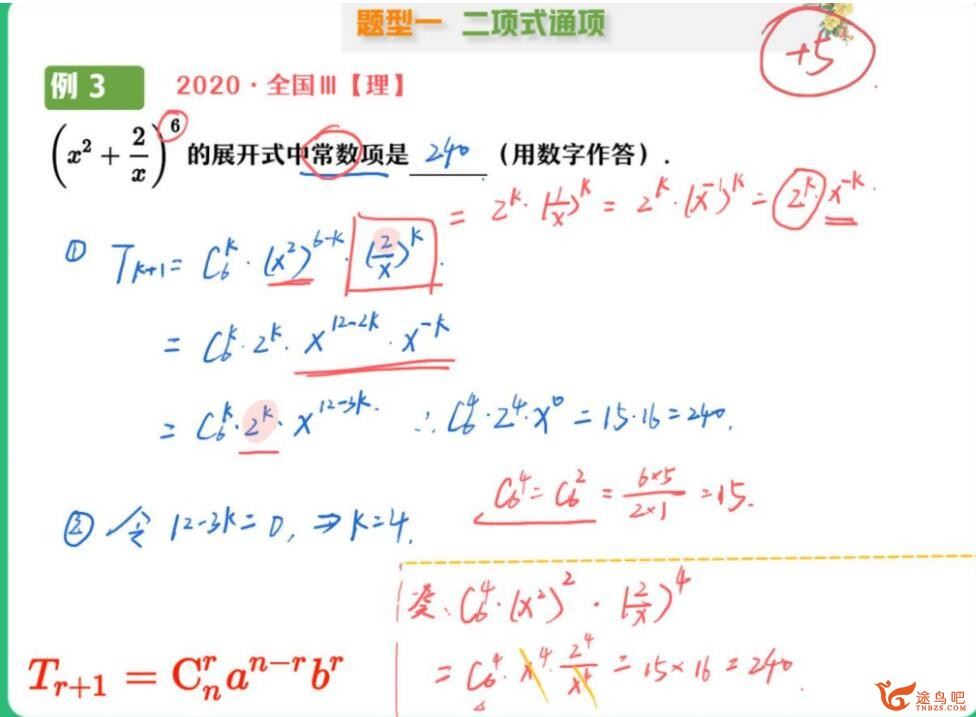 题型一 二项式通项
+5
例 3 2020·全国Ⅲ【理】
(x² + 2/x)⁶ 的展开式中常数项是 240 (用数字作答).
= 2ᵏ·(1/x)ᵏ = 2ᵏ·(x⁻¹)ᵏ = 2ᵏ·x⁻ᵏ.
① Tₖ₊₁ = C₆ᵏ·(x²)⁶⁻ᵏ·(2/x)ᵏ.
= C₆ᵏ·2ᵏ·x¹²⁻²ᵏ·x⁻ᵏ
= C₆ᵏ·2ᵏ·x¹²⁻³ᵏ. ∴ C₆⁴·2⁴·x⁰ = 15·16 = 240.
C₆⁴ = C₆² = 6×5/2×1 = 15.
② 令 12-3k = 0, ⇒ k = 4.
C₆⁴·(x²)²·(2/x)⁴
= C₆⁴·x⁴·2⁴/x⁴ = 15×16 = 240.
Tᵣ₊₁ = Cₙʳaⁿ⁻ʳbʳ
途鸟吧
TNBZS.COM